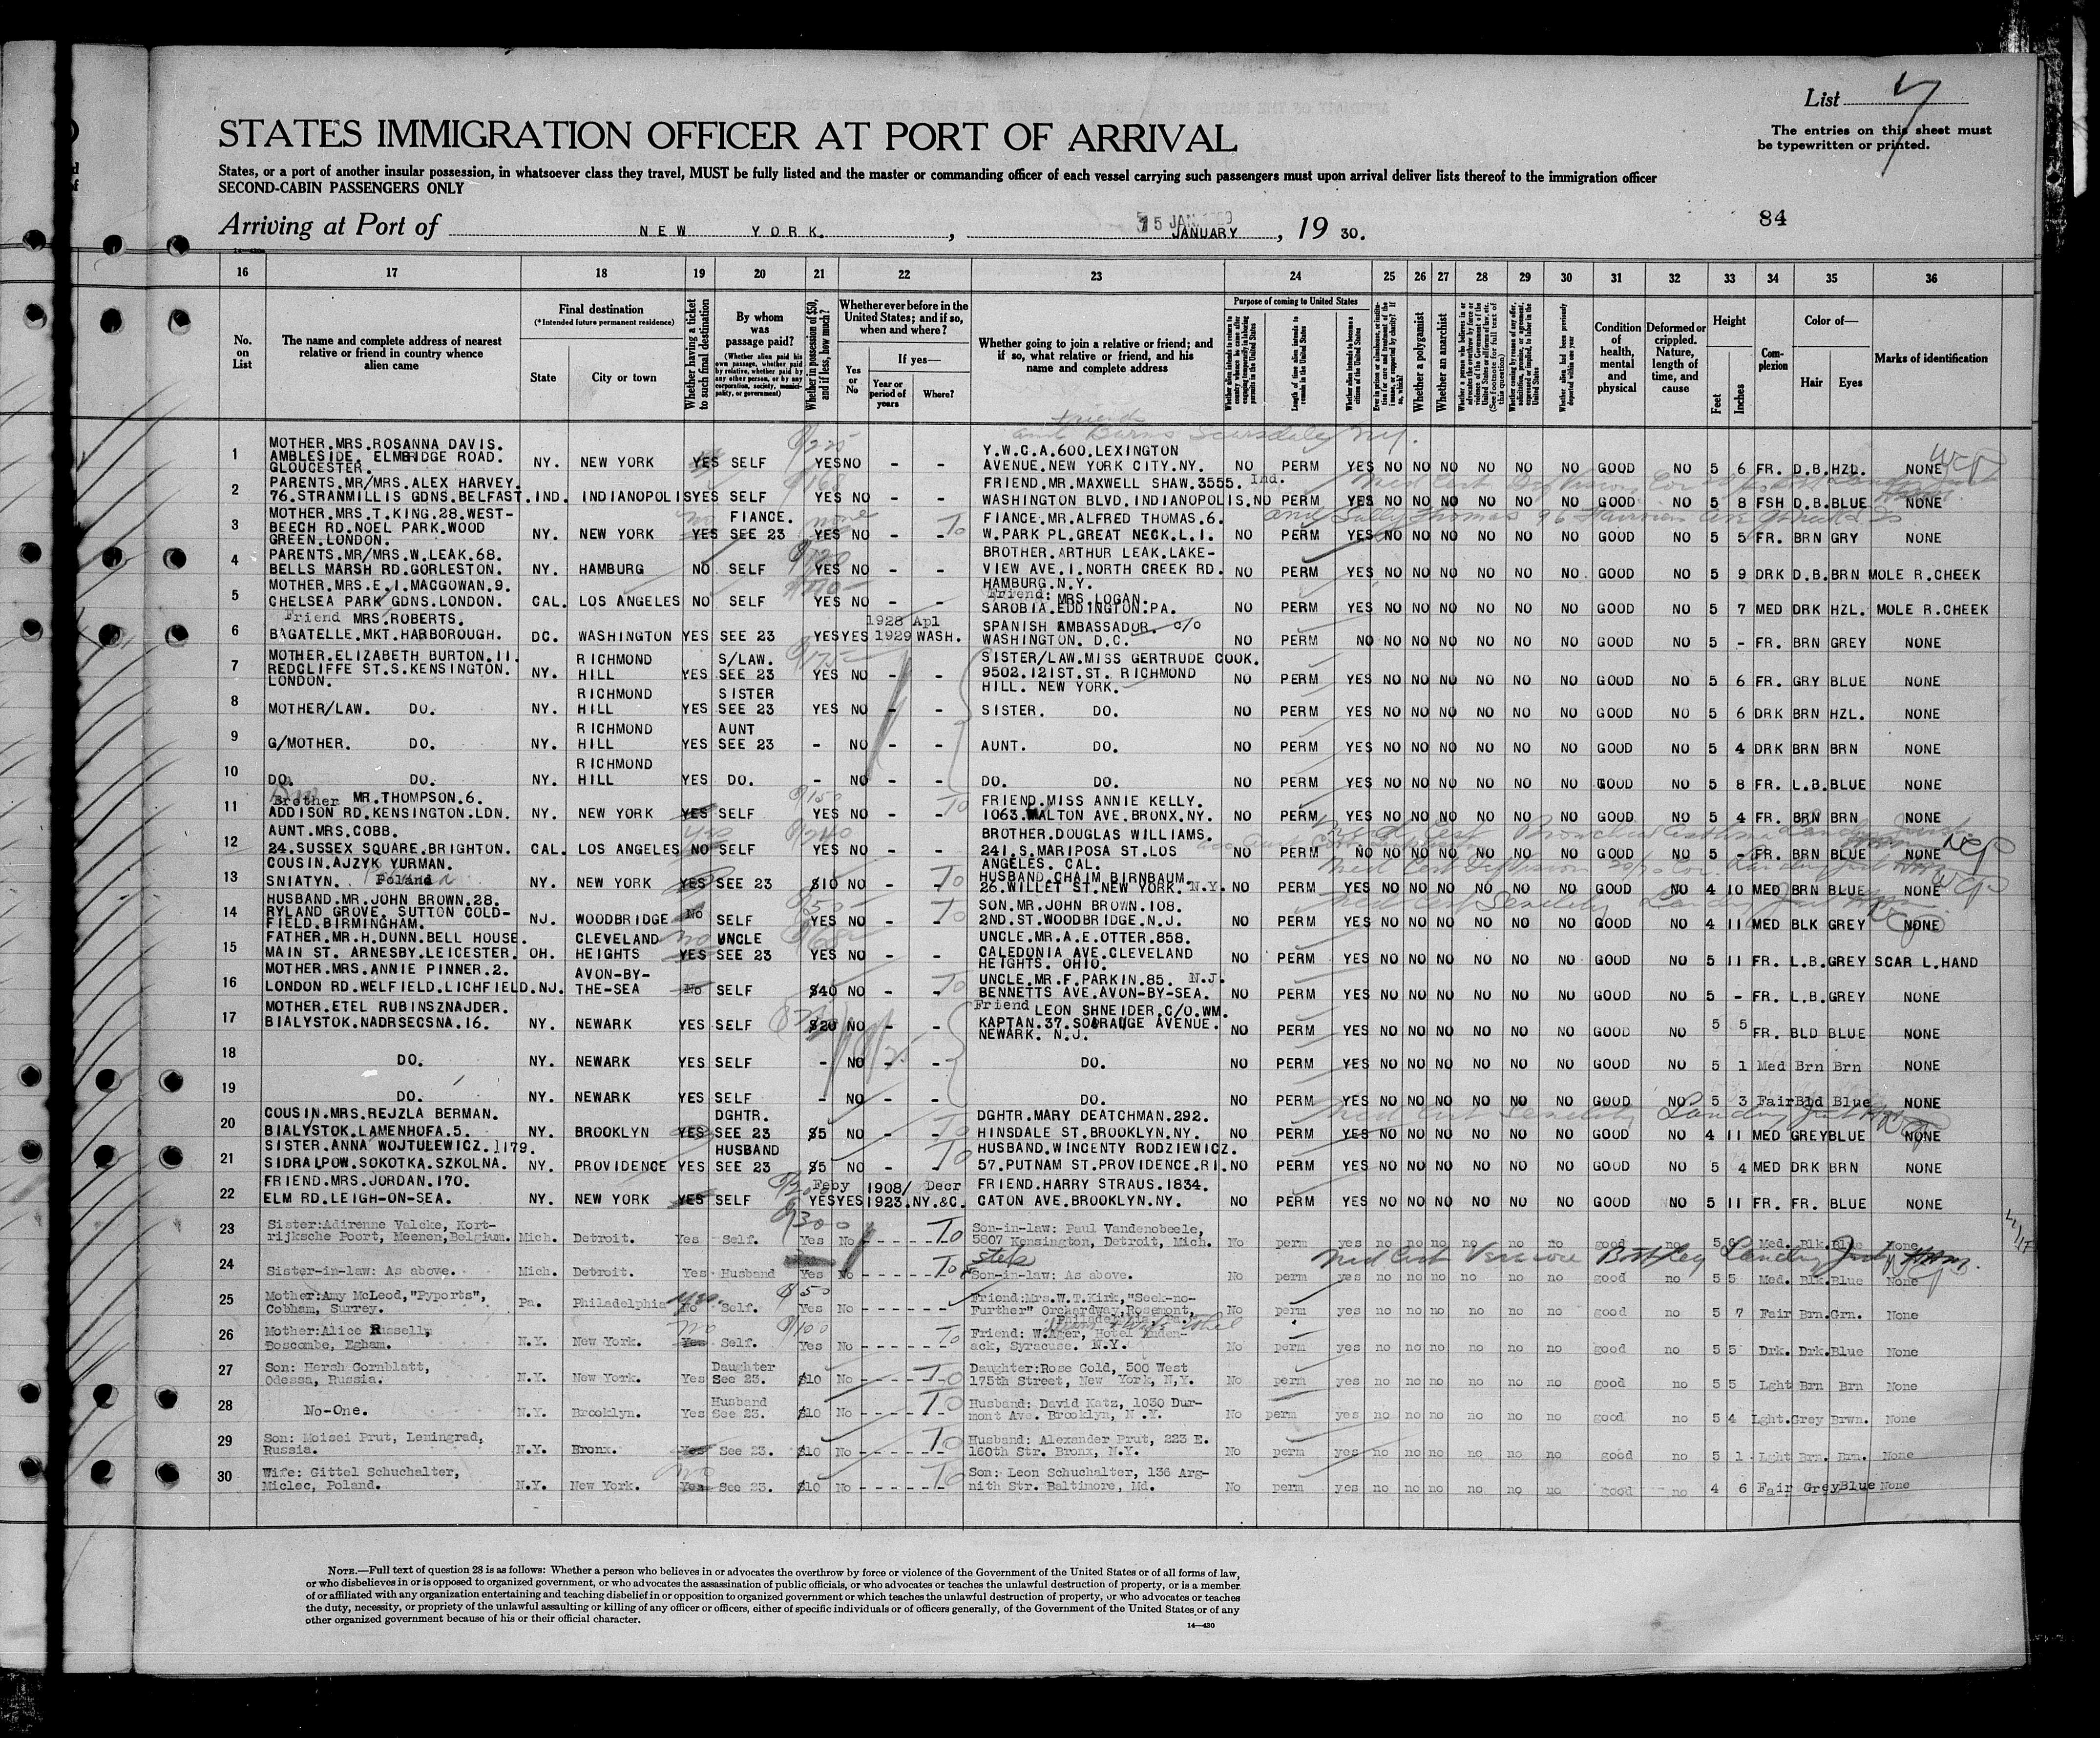 List 7
The entries on this sheet must
be typewritten or printed.
STATES IMMIGRATION OFFICER AT PORT OF ARRIVAL
States, or a port of another insular possession, in whatsoever class they travel, MUST be fully listed and the master or commanding officer of each vessel carrying such passengers must upon arrival deliver lists thereof to the immigration officer
SECOND-CABIN PASSENGERS ONLY
84
Arriving at Port of NEW YORK. , JANUARY , 19 30.
16 17 18 19 20 21 22 23 24 25 26 27 28 29 30 31 32 33 34 35 36
No. on List
The name and complete address of nearest relative or friend in country whence alien came
Final destination
(*Intended future permanent residence)
State
City or town
Whether having a ticket to such final destination
By whom was passage paid?
(Whether alien paid his own passage, whether paid by relative, whether paid by any other person, or by any corporation, society, municipality, or government)
Whether in possession of $50, and if less, how much?
Whether ever before in the United States; and if so, when and where?
Yes or No
If yes—
Year or period of years
Where?
Whether going to join a relative or friend; and if so, what relative or friend, and his name and complete address
Purpose of coming to United States
Whether a polygamist
Whether an anarchist
Condition of health, mental and physical
Deformed or crippled. Nature, length of time, and cause
Height
Feet
Inches
Complexion
Color of—
Hair
Eyes
Marks of identification
1 MOTHER.MRS.ROSANNA DAVIS. AMBLESIDE. ELMBRIDGE ROAD. GLOUCESTER. NY. NEW YORK YES SELF YES NO - - Y.W.C.A.600.LEXINGTON AVENUE.NEW YORK CITY.NY. NO PERM YES NO NO NO NO NO NO GOOD NO 5 6 FR. D.B. HZL. NONE
2 PARENTS.MR/MRS.ALEX HARVEY. 76.STRANMILLIS GDNS.BELFAST. IND. INDIANAPOLIS YES SELF YES NO - - FRIEND.MR.MAXWELL SHAW.3555. WASHINGTON BLVD.INDIANAPOLIS. Ind. NO PERM YES NO NO NO NO NO NO GOOD NO 5 8 FSH D.B. BLUE NONE
3 MOTHER.MRS.T.KING.28.WEST- BEECH RD.NOEL PARK.WOOD GREEN.LONDON. NY. NEW YORK YES FIANCE. SEE 23 YES NO - - FIANCE.MR.ALFRED THOMAS.6. W.PARK PL.GREAT NECK.L.I. NO PERM YES NO NO NO NO NO NO GOOD NO 5 5 FR. BRN GRY NONE
4 PARENTS.MR/MRS.W.LEAK.68. BELLS MARSH RD.GORLESTON. NY. HAMBURG NO SELF YES NO - - BROTHER.ARTHUR LEAK.LAKE- VIEW AVE.I.NORTH CREEK RD. HAMBURG.N.Y. NO PERM YES NO NO NO NO NO NO. GOOD NO 5 9 DRK D.B. BRN MOLE R.CHEEK
5 MOTHER.MRS.E.I.MACGOWAN.9. CHELSEA PARK GDNS.LONDON. CAL. LOS ANGELES NO SELF YES NO - - Friend: MRS.LOGAN. SAROBIA.EDDINGTON.PA. NO PERM YES NO NO NO NO NO NO GOOD NO 5 7 MED DRK HZL. MOLE R.CHEEK
6 Friend MRS.ROBERTS. BAGATELLE.MKT.HARBOROUGH. DC. WASHINGTON YES SEE 23 YES YES 1928 Apl 1929 WASH. SPANISH AMBASSADOR. c/o WASHINGTON. D.C. NO PERM NO NO NO NO NO NO NO GOOD NO 5 - FR. BRN GREY NONE
7 MOTHER.ELIZABETH BURTON.11. REDCLIFFE ST.S.KENSINGTON. LONDON. NY. RICHMOND HILL YES S/LAW. SEE 23 YES NO - - SISTER/LAW.MISS GERTRUDE COOK. 9502.121ST.ST. RICHMOND HILL. NEW YORK. NO PERM YES NO NO NO NO NO NO GOOD NO 5 6 FR. GRY BLUE NONE
8 MOTHER/LAW. DO. NY. RICHMOND HILL YES SISTER SEE 23 YES NO - - SISTER. DO. NO PERM YES NO NO NO NO NO NO GOOD NO 5 6 DRK BRN HZL. NONE
9 G/MOTHER. DO. NY. RICHMOND HILL YES AUNT SEE 23 - NO - - AUNT. DO. NO PERM YES NO NO NO NO NO NO GOOD NO 5 4 DRK BRN BRN NONE
10 DO. DO. NY. RICHMOND HILL YES DO. - NO - - DO. DO. NO PERM YES NO NO NO NO NO NO GOOD NO 5 8 FR. L.B. BLUE NONE
11 Brother MR.THOMPSON.6. ADDISON RD.KENSINGTON.LDN. NY. NEW YORK YES SELF YES NO - - FRIEND.MISS ANNIE KELLY. 1063.WALTON AVE.BRONX.NY. NO PERM YES NO NO NO NO NO NO GOOD NO 5 4 FR. BRN BRN NONE
12 AUNT.MRS.COBB. 24.SUSSEX SQUARE.BRIGHTON. CAL. LOS ANGELES NO SELF YES NO - - BROTHER.DOUGLAS WILLIAMS. 241.S.MARIPOSA ST.LOS ANGELES. CAL. NO PERM NO NO NO NO NO NO NO GOOD NO 5 - FR. BRN BLUE NONE
13 COUSIN.AJZYK YURMAN. SNIATYN. Poland NY. NEW YORK YES SEE 23 $10 NO - - HUSBAND.CHAIM BIRNBAUM. 26.WILLET ST.NEW YORK. N.Y. NO PERM YES NO NO NO NO NO NO GOOD NO 4 10 MED BRN BLUE NONE
14 HUSBAND.MR.JOHN BROWN.28. RYLAND GROVE. SUTTON COLD- FIELD.BIRMINGHAM. NJ. WOODBRIDGE No SELF YES NO - - SON.MR.JOHN BROWN.108. 2ND.ST.WOODBRIDGE.N.J. NO PERM YES NO NO NO NO NO NO GOOD NO 4 11 MED BLK GREY NONE
15 FATHER.MR.H.DUNN.BELL HOUSE. MAIN ST. ARNESBY.LEICESTER. OH. CLEVELAND HEIGHTS YES UNCLE SEE 23 YES NO - - UNCLE.MR.A.E.OTTER.858. CALEDONIA AVE.CLEVELAND HEIGHTS. OHIO. NO PERM YES NO NO NO NO NO NO GOOD NO 5 11 FR. L.B. GREY SCAR L.HAND
16 MOTHER.MRS.ANNIE PINNER.2. LONDON RD.WELFIELD.LICHFIELD. NJ. AVON-BY- THE-SEA No SELF $40 NO - - UNCLE.MR.F.PARKIN.85. N.J. BENNETTS AVE.AVON-BY-SEA. NO PERM YES NO NO NO NO NO NO GOOD NO 5 - FR. L.B. GREY NONE
17 MOTHER.ETEL RUBINSZNAJDER. BIALYSTOK.NADRSECSNA.16. NY. NEWARK YES SELF $20 NO - - Friend LEON SHNEIDER.C/O.WM. KAPTAN.37.SO AVENUE. NEWARK. N.J. NO PERM YES NO NO NO NO NO NO GOOD NO 5 5 FR. BLD BLUE NONE
18 DO. NY. NEWARK YES SELF - NO - - DO. NO PERM YES NO NO NO NO NO NO GOOD NO 5 1 Med Brn Brn NONE
19 DO. NY. NEWARK YES SELF - NO - - DO. NO PERM YES NO NO NO NO NO NO GOOD NO 5 3 Fair Bld Blue NONE
20 COUSIN.MRS.REJZLA BERMAN. BIALYSTOK.LAMENHOFA.5. NY. BROOKLYN YES DGHTR. SEE 23 $5 NO - - DGHTR.MARY DEATCHMAN.292. HINSDALE ST.BROOKLYN.NY. NO PERM YES NO NO NO NO NO NO GOOD NO 4 11 MED GREY BLUE NONE
21 SISTER.ANNA WOJTULEWICZ.1179. SIDRALPOW.SOKOTKA.SZKOLNA. NY. PROVIDENCE YES HUSBAND SEE 23 $5 NO - - HUSBAND.WINCENTY RODZIEWICZ. 57.PUTNAM ST.PROVIDENCE.RI. NO PERM YES NO NO NO NO NO NO GOOD NO 5 4 MED DRK BRN NONE
22 FRIEND.MRS.JORDAN.170. ELM RD.LEIGH-ON-SEA. NY. NEW YORK YES SELF YES YES Feby 1908/ Decr 1923.NY.&C. FRIEND.HARRY STRAUS.1834. CATON AVE.BROOKLYN.NY. NO PERM YES NO NO NO NO NO NO GOOD NO 5 11 FR. FR. BLUE NONE
23 Sister:Adirenne Valcke, Kort- rijksche Poort, Meenen,Belgium. Mich. Detroit. Yes Self. Yes No - - - - - Son-in-law: Paul Vandenobeele, 5807 Kensington, Detroit, Mich. No perm yes no no no no no no good no 5 Med. Blk. None
24 Sister-in-law: As above. Mich. Detroit. Yes Husband Yes No - - - - - Son-in-law: As above. No perm yes no no no no no no good no 5 5 Med. Blk. Blue None
25 Mother:Amy McLeod,"Pyports", Cobham, Surrey. Pa. Philadelphia No Self. Yes No - - - - - Friend:Mrs.W.T.Kirk,"Seek-no- Further" Orchardway,Rosemont, Philadelphia, Pa. No perm yes no no no no no no good no 5 7 Fair Brn. Grn. None
26 Mother:Alice Russell, Boscombe, Egham. N.Y. New York. Yes Self. Yes No - - - - - Friend: W.Ager, Hotel Onden- ack, Syracuse. N.Y. No perm yes no no no no no no good no 5 5 Drk. Drk. Blue None
27 Son: Hersh Gornblatt, Odessa, Russia. N.Y. New York. Yes Daughter See 23. $10 No - - - - - Daughter:Rose Gold, 500 West 175th Street, New York, N.Y. No perm yes no no no no no no good no 5 5 Lght Brn Brn None
28 No-One. N.Y. Brooklyn. Yes Husband See 23. $10 No - - - - - Husband: David Katz, 1030 Dur- mont Ave. Brooklyn, N.Y. No perm yes no no no no no no good no 5 4 Lght. Grey Brwn. None
29 Son: Moisei Prut, Leningrad, Russia. N.Y. Bronx. Yes See 23. $10 No - - - - - Husband: Alexander Prut, 223 E. 160th Str. Bronx, N.Y. No perm yes no no no no no no good no 5 1 Lght Brn. Brn. None
30 Wife: Gittel Schuchalter, Miclec, Poland. N.Y. New York. Yes See 23. $10 No - - - - - Son: Leon Schuchalter, 136 Arg- nith Str. Baltimore, Md. No perm yes no no no no no no good no 4 6 Fair Grey Blue None
NOTE.—Full text of question 28 is as follows: Whether a person who believes in or advocates the overthrow by force or violence of the Government of the United States or of all forms of law,
or who disbelieves in or is opposed to organized government, or who advocates the assassination of public officials, or who advocates or teaches the unlawful destruction of property, or is a member
of or affiliated with any organization entertaining and teaching disbelief in or opposition to organized government or which teaches the unlawful destruction of property, or who advocates or teaches
the duty, necessity, or propriety of the unlawful assaulting or killing of any officer or officers, either of specific individuals or of officers generally, of the Government of the United States or of any
other organized government because of his or their official character.
14—430